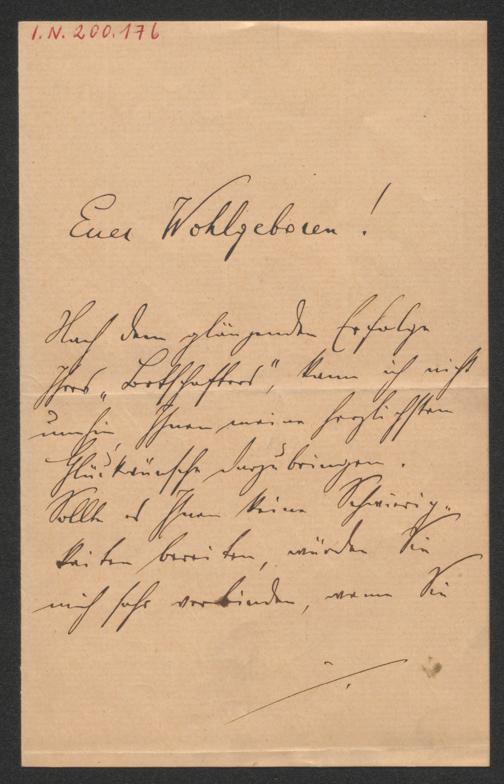 I.N. 200.176
Euer Wohlgeboren!
Nach dem glänzenden Erfolge
Ihres „Botschafters", kann ich nicht
umhin, Ihnen meine herzlichsten
Glückwünsche darzubringen.
Sollte es Ihnen keine Schwierig-
keiten bereiten, würden Sie
mich sehr verbinden, wenn Sie